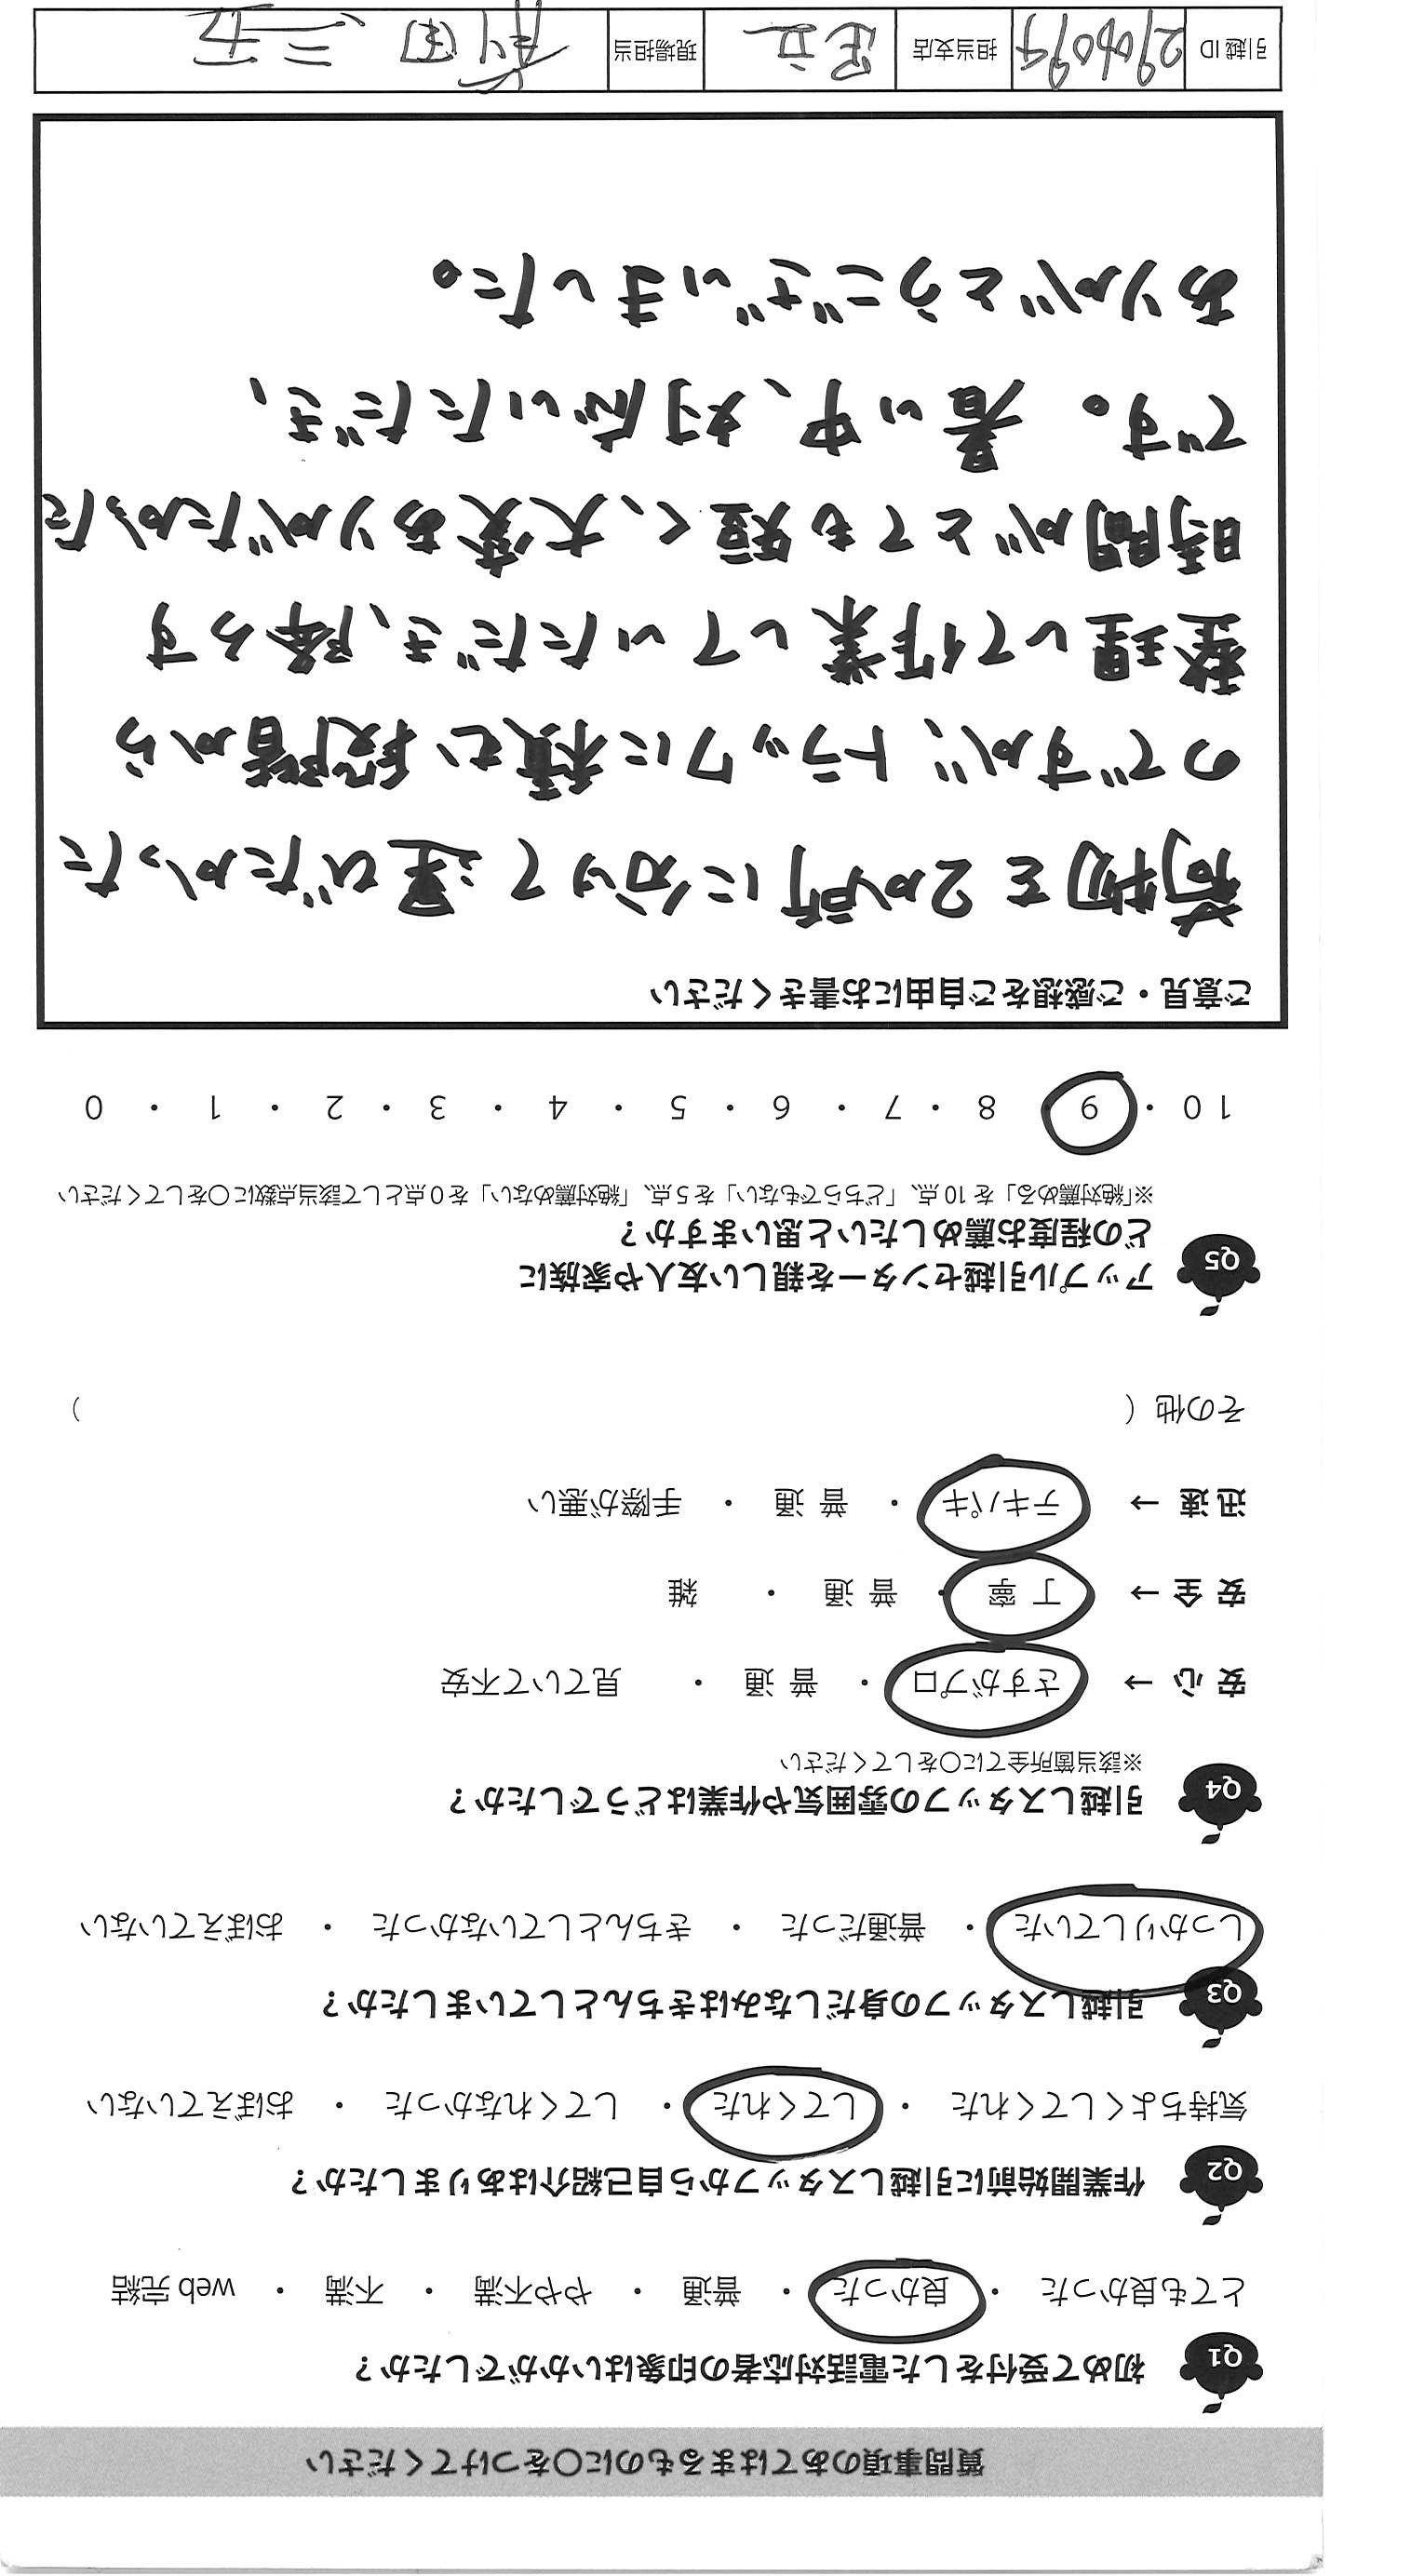 質問事項のあてはまるものに○をつけてください
Q1 初めて受付をした電話対応者の印象はいかがでしたか？
とても良かった ・ 良かった ・ 普通 ・ やや不満 ・ 不満 ・ web 完結
Q2 作業開始前に引越しスタッフから自己紹介はありましたか？
気持ちよくしてくれた ・ してくれた ・ してくれなかった ・ おぼえていない
Q3 引越しスタッフの身だしなみはきちんとしていましたか？
しっかりしていた ・ 普通だった ・ きちんとしていなかった ・ おぼえていない
Q4 引越しスタッフの雰囲気や作業はどうでしたか？
※該当箇所全てに○をしてください
安 心 → さすがプロ ・ 普 通 ・ 見ていて不安
安 全 → 丁 寧 ・ 普 通 ・ 雑
迅 速 → テキパキ ・ 普 通 ・ 手際が悪い
その他（ ）
Q5 アップル引越センターを親しい友人や家族に
どの程度お薦めしたいと思いますか？
※「絶対薦める」を 10 点、「どちらでもない」を 5 点、「絶対薦めない」を 0 点として該当点数に○をしてください
10 ・ 9 ・ 8 ・ 7 ・ 6 ・ 5 ・ 4 ・ 3 ・ 2 ・ 1 ・ 0
ご意見・ご感想をご自由にお書きください
荷物を2か所に分けて運びたかった
のですが、トラックに積む段階から
整理して作業していただき、降ろす
時間がとても短く、大変ありがたかった
です。暑い中、対応いただき、
ありがとうございました。
引越 ID 担当支店 足立 現場担当